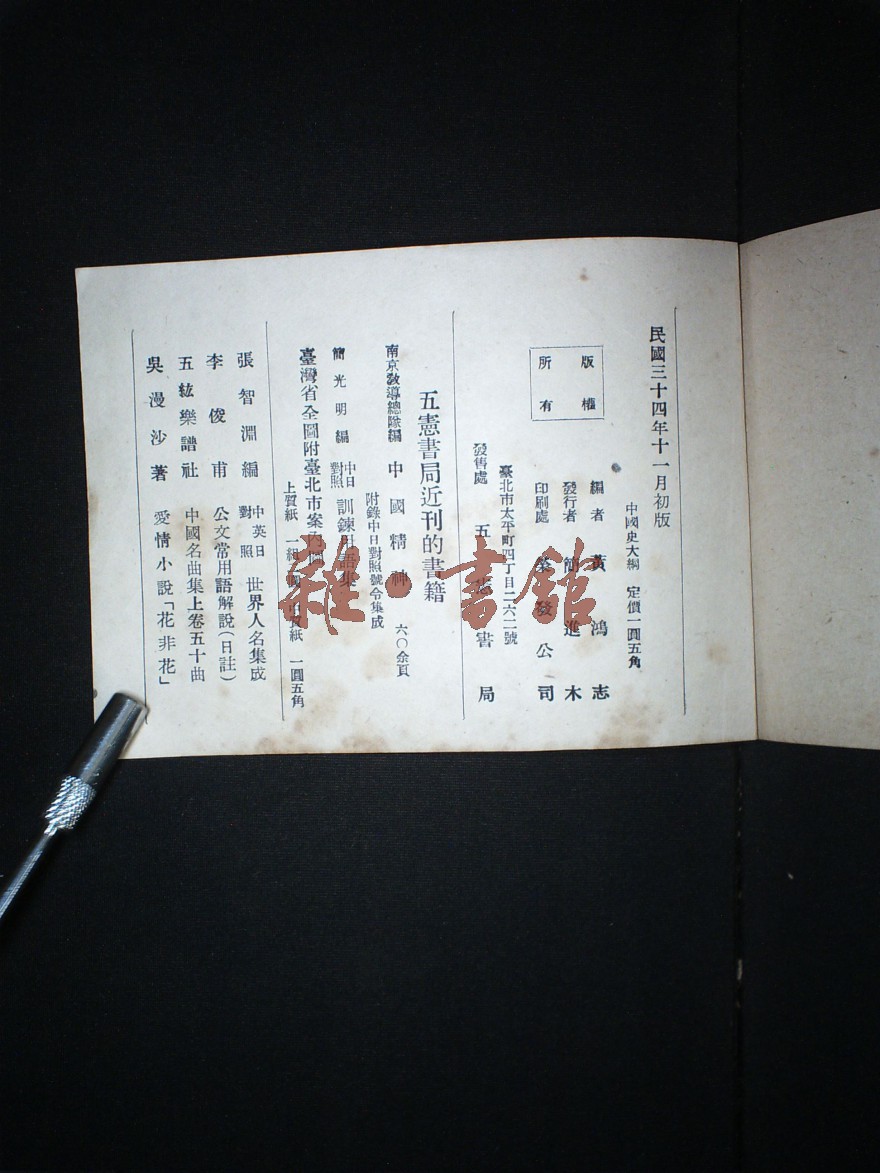 民國三十四年十一月初版
中國史大綱 定價一圓五角
編者 黃鴻志
發行者 簡進木
印刷處 發公司
版權
所有
臺北市太平町四丁目二六二號
發售處 五 書局
五憲書局近刊的書籍
南京敎導總隊編 中國精神 六〇余頁
附錄中日對照號令集成
簡光明編 中日對照 訓鍊用語集
臺灣省全圖附臺北市案內圖
上質紙 一組 紙 一圓五角
張智淵編 中英日對照 世界人名集成
李俊甫 公文常用語解說(日註)
五紘樂譜社 中國名曲集上卷五十曲
吳漫沙著 愛情小說「花非花」
雜·書館